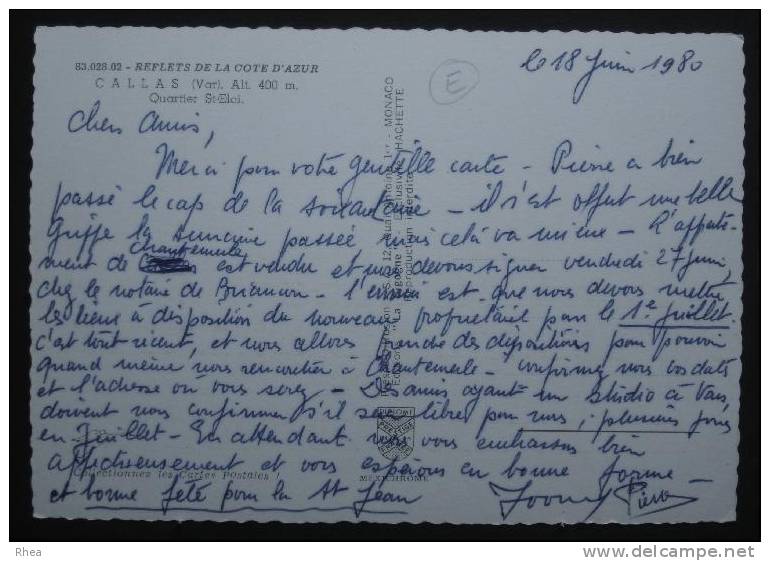 83.028.02 - REFLETS DE LA COTE D'AZUR
CALLAS (Var). Alt. 400 m.
Quartier St-Eloi.
E
le 18 Juin 1980
Chers Amis,
Merci pour votre gentille carte - Pierre a bien
passé le cap de la soixantaine - il s'est offert une belle
Grippe la semaine passée mais cela va mieux - L'apparte-
ment de Chantemerle est vendu et nous devons signer vendredi 27 Juin,
chez le notaire de Briançon - l'ennui est que nous devons mettre
les lieux à disposition du nouveau propriétaire pour le 1er Juillet.
c'est tout récent, et nous allons prendre des dispositions pour pouvoir
quand même nous rencontrer à Chantemerle - confirmez nous vos dates
et l'adresse où vous serez - Des amis ayant un Studio à Vars,
doivent nous confirmer s'il sera libre pour nous, plusieurs jours
en Juillet - En attendant nous vous embrassons bien
affectueusement et vous espérons en bonne forme
et bonne fête pour la St Jean
Pierre
Collectionnez les Cartes Postales !
MEXICHROME
- MONACO
HACHETTE
Reproduction interdite
Rhea
www.delcampe.net